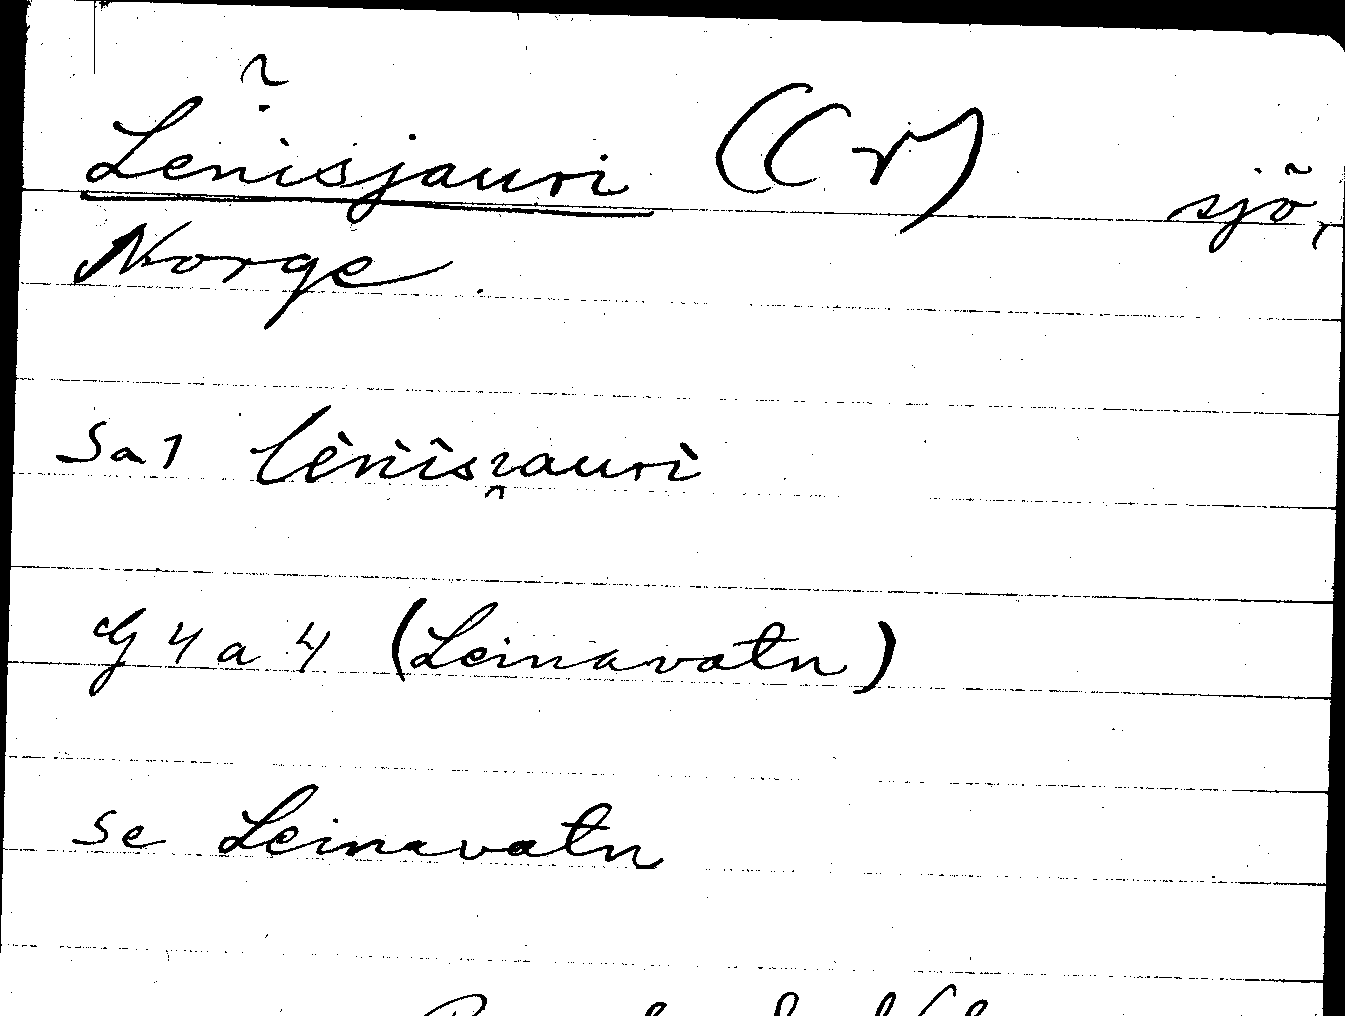 Lenisjauri (Cr) sjö,
Norge.
Sa1
G4a4 (Leinavatn)
se Leinavatn